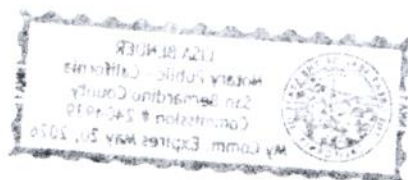 LISA
Notary Public - California
San Bernardino County
Commission #
My Comm. Expires May 20, 2026